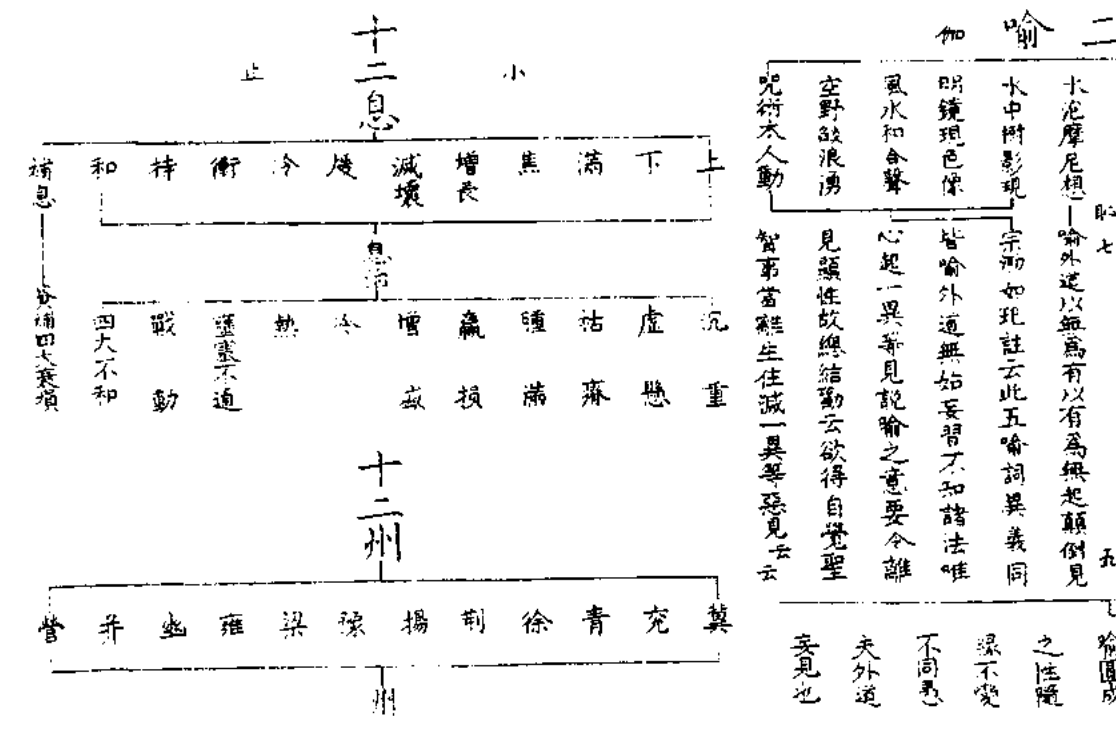 二
喻
伽
水泡摩尼想
水中樹影現
明鏡現色像
風水和合聲
空野敲浪湧
咒術木人動
恥七
五
喻外道以無為有以有為無起顛倒見
宗泐如玘註云此五喻詞異義同
皆喻外道無始妄習不知諸法唯
心起一異等見說喻之意要令離
見顯性故總結勸云欲得自覺聖
智事當離生住滅一異等惡見云云
喻圓成
之性隨
緣不變
不同愚
夫外道
妄見也
十二息
小
止
上
下
滿
焦
增長
滅壞
煖
冷
衝
持
和
補息
息治
沉重
虛懸
枯瘠
腫滿
羸損
增盛
冷
熱
壅塞不通
戰動
四大不和
資補四大衰損
十二州
冀
兗
青
徐
荊
揚
豫
梁
雍
幽
并
營
州